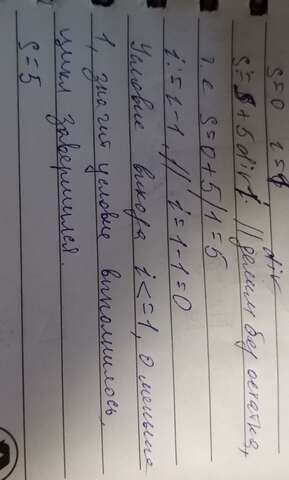 s=0 i=1
div
s:=s+5 div i. // делим без остатка,
т.е S=0+5/1=5
i:=i-1, // i=1-1=0
Условие выхода i<=1, 0 меньше
1, значит условие выполнилось,
цикл завершился.
S=5